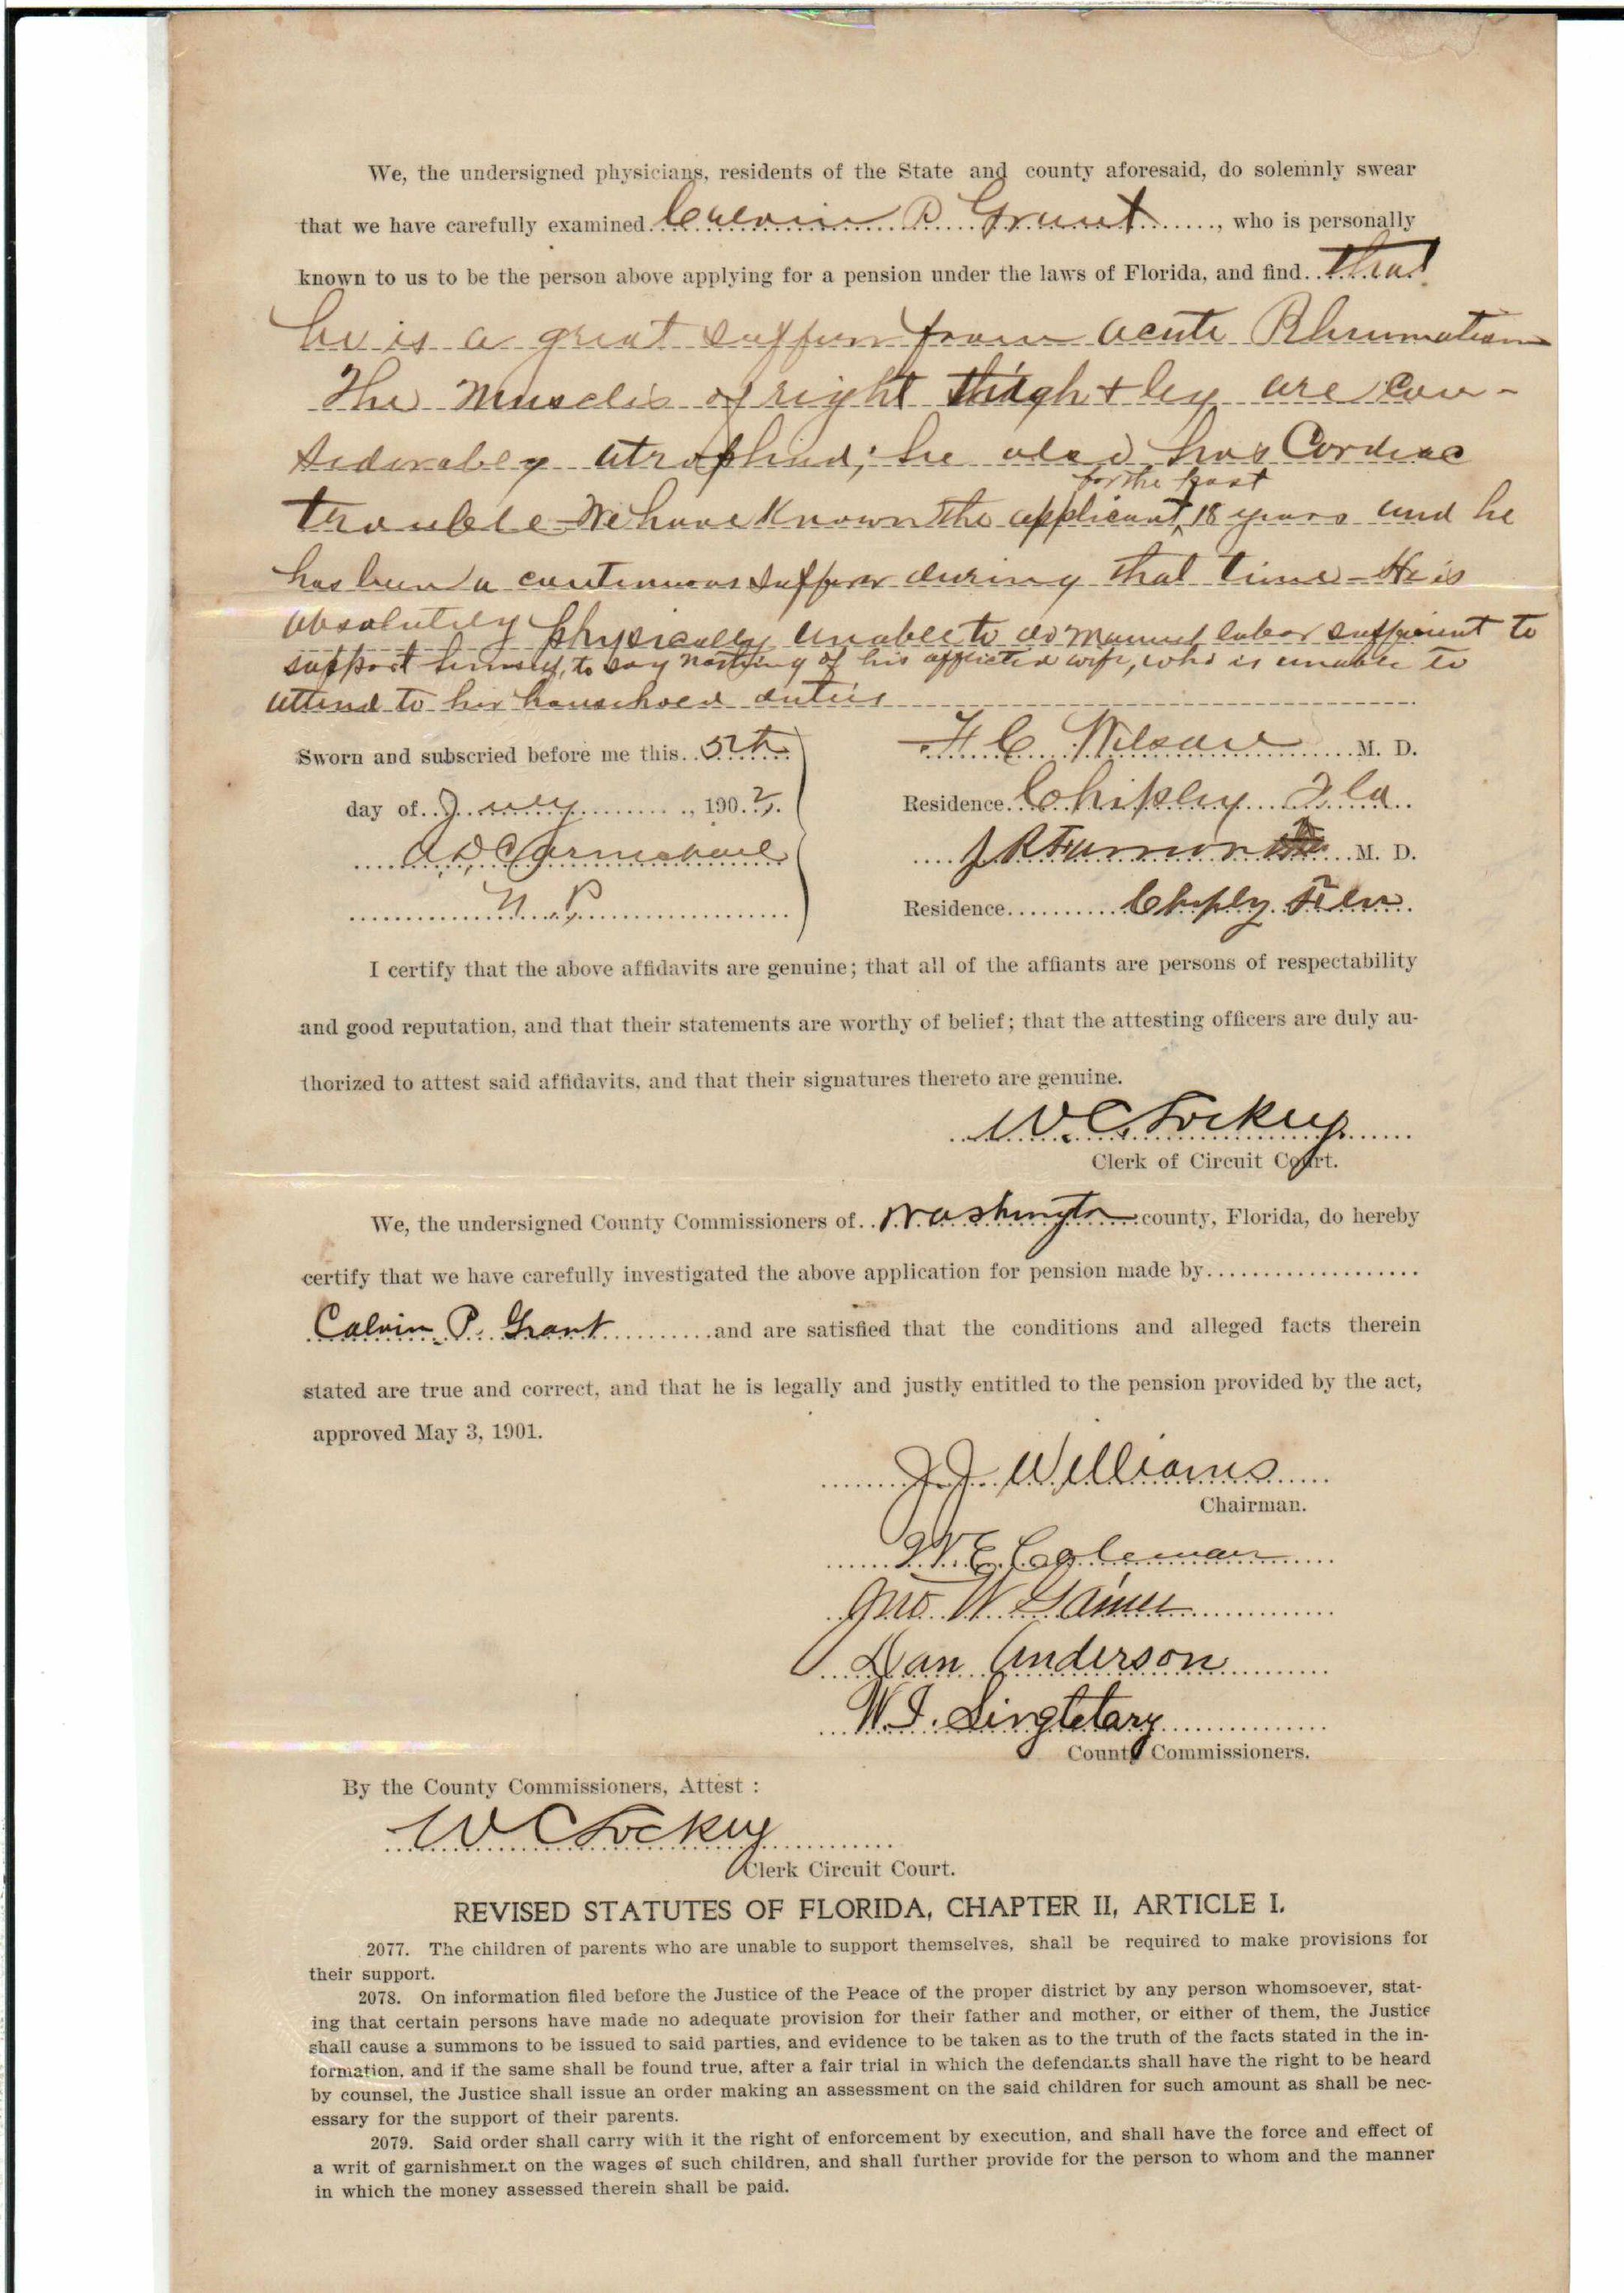 We, the undersigned physicians, residents of the State and county aforesaid, do solemnly swear
that we have carefully examined Calvin P. Grant, who is personally
known to us to be the person above applying for a pension under the laws of Florida, and find that
he is a great sufferer from acute Rhumatism
The Muscles of right thigh + leg are con-
siderably atrophied; he also has Cardiac
trouble - We have Known the applicant for the past 18 years and he
has been a continuous sufferer during that time - He is
absolutely physically unable to do manual labor sufficient to
support himself, to say nothing of his afflicted wife, who is unable to
attend to her household duties
Sworn and subscried before me this 5th
day of July, 1902.
A D Carmichael
N. P.
F C Wilson M. D.
Residence Chipley Fla
J R M. D.
Residence Chiply Fla
I certify that the above affidavits are genuine; that all of the affiants are persons of respectability
and good reputation, and that their statements are worthy of belief; that the attesting officers are duly au-
thorized to attest said affidavits, and that their signatures thereto are genuine.
W. C. Lockey
Clerk of Circuit Court.
We, the undersigned County Commissioners of Washington county, Florida, do hereby
certify that we have carefully investigated the above application for pension made by
Calvin P. Grant and are satisfied that the conditions and alleged facts therein
stated are true and correct, and that he is legally and justly entitled to the pension provided by the act,
approved May 3, 1901.
J J Williams
Chairman.
W. E. Coleman
Jno. W Gainer
Dan Anderson
W. I. Singletary
County Commissioners.
By the County Commissioners, Attest :
W C Lockey
Clerk Circuit Court.
REVISED STATUTES OF FLORIDA, CHAPTER II, ARTICLE I.
2077. The children of parents who are unable to support themselves, shall be required to make provisions for
their support.
2078. On information filed before the Justice of the Peace of the proper district by any person whomsoever, stat-
ing that certain persons have made no adequate provision for their father and mother, or either of them, the Justice
shall cause a summons to be issued to said parties, and evidence to be taken as to the truth of the facts stated in the in-
formation, and if the same shall be found true, after a fair trial in which the defendants shall have the right to be heard
by counsel, the Justice shall issue an order making an assessment on the said children for such amount as shall be nec-
essary for the support of their parents.
2079. Said order shall carry with it the right of enforcement by execution, and shall have the force and effect of
a writ of garnishment on the wages of such children, and shall further provide for the person to whom and the manner
in which the money assessed therein shall be paid.